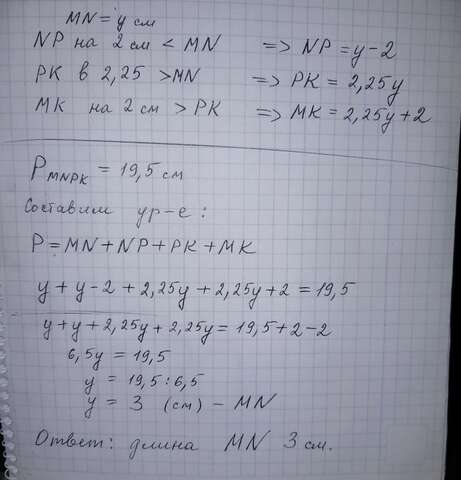 MN = y см
NP на 2 см < MN => NP = y - 2
PK в 2,25 > MN => PK = 2,25y
MK на 2 см > PK => MK = 2,25y + 2
P MNPK = 19,5 см
Составим ур-е:
P = MN + NP + PK + MK
y + y - 2 + 2,25y + 2,25y + 2 = 19,5
y + y + 2,25y + 2,25y = 19,5 + 2 - 2
6,5y = 19,5
y = 19,5 : 6,5
y = 3 (см) - MN
Ответ: длина MN 3 см.